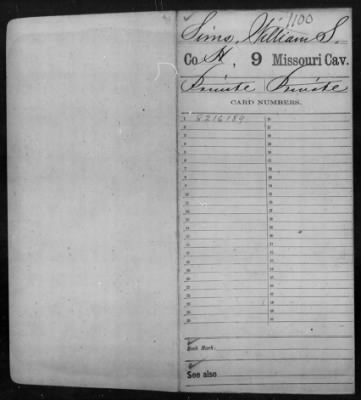 1100
Sims, William S.
Co. H, 9 Missouri Cav.
Private Private
CARD NUMBERS.
1 8216189
Book Mark:
See also